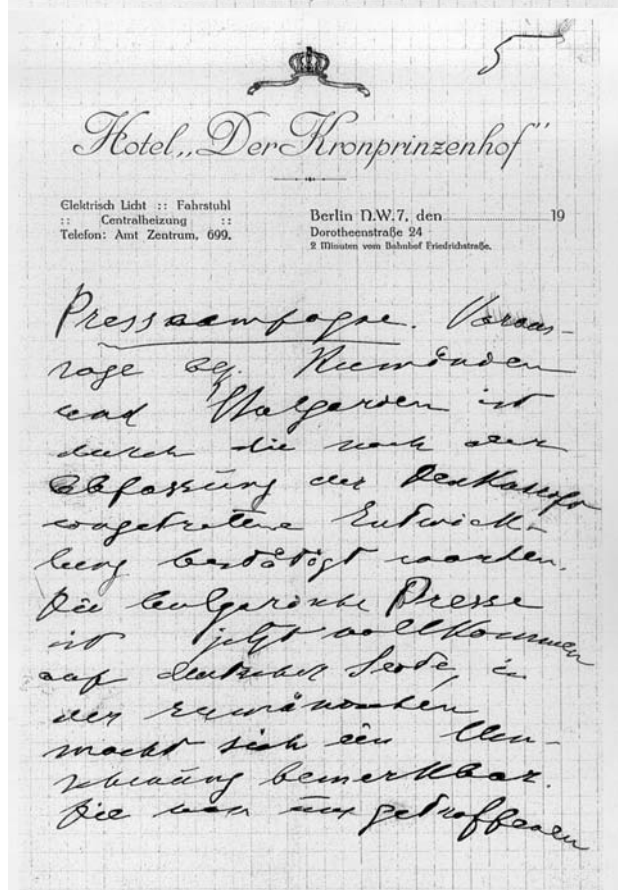 5
Hotel „Der Kronprinzenhof"
Elektrisch Licht :: Fahrstuhl
:: Centralheizung ::
Telefon: Amt Zentrum, 699.
Berlin N.W.7, den 19
Dorotheenstraße 24
2 Minuten vom Bahnhof Friedrichstraße.
Presscampagne. Voraus-
sage bez. Rumänien
und Bulgarien ist
durch die nach der
Abfassung der Denkschrift
eingetretene Entwick-
lung bestätigt worden.
Die bulgarische Presse
ist jetzt vollkommen
auf deutscher Seite, in
der rumänischen
macht sich ein Um-
schwung bemerkbar.
Die von uns getroffenen